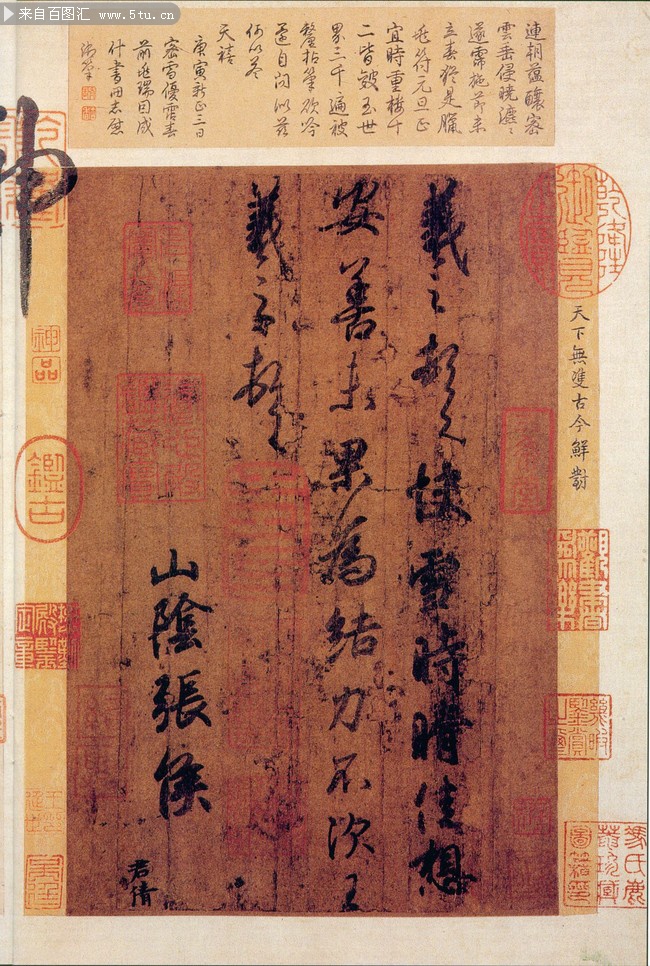 来自百图汇 www.5tu.cn
連朝蘊釀密
雲垂侵曉瀌瀌
遂霈施節未
立春猶是臘
兆符元旦正
宜時重樓十
二皆皴玉世
界三千遍被
釐拈筆欲吟
還自問似茲
何以答
天禧
庚寅新正三日
密雪優霑春
前兆瑞因成
什書冊志慰
御筆
天下無雙古今鮮對
羲之頓首快雪時晴佳想
安善未果為結力不次王
羲之頓首
山陰張侯
君倩
神
神品
鑑古